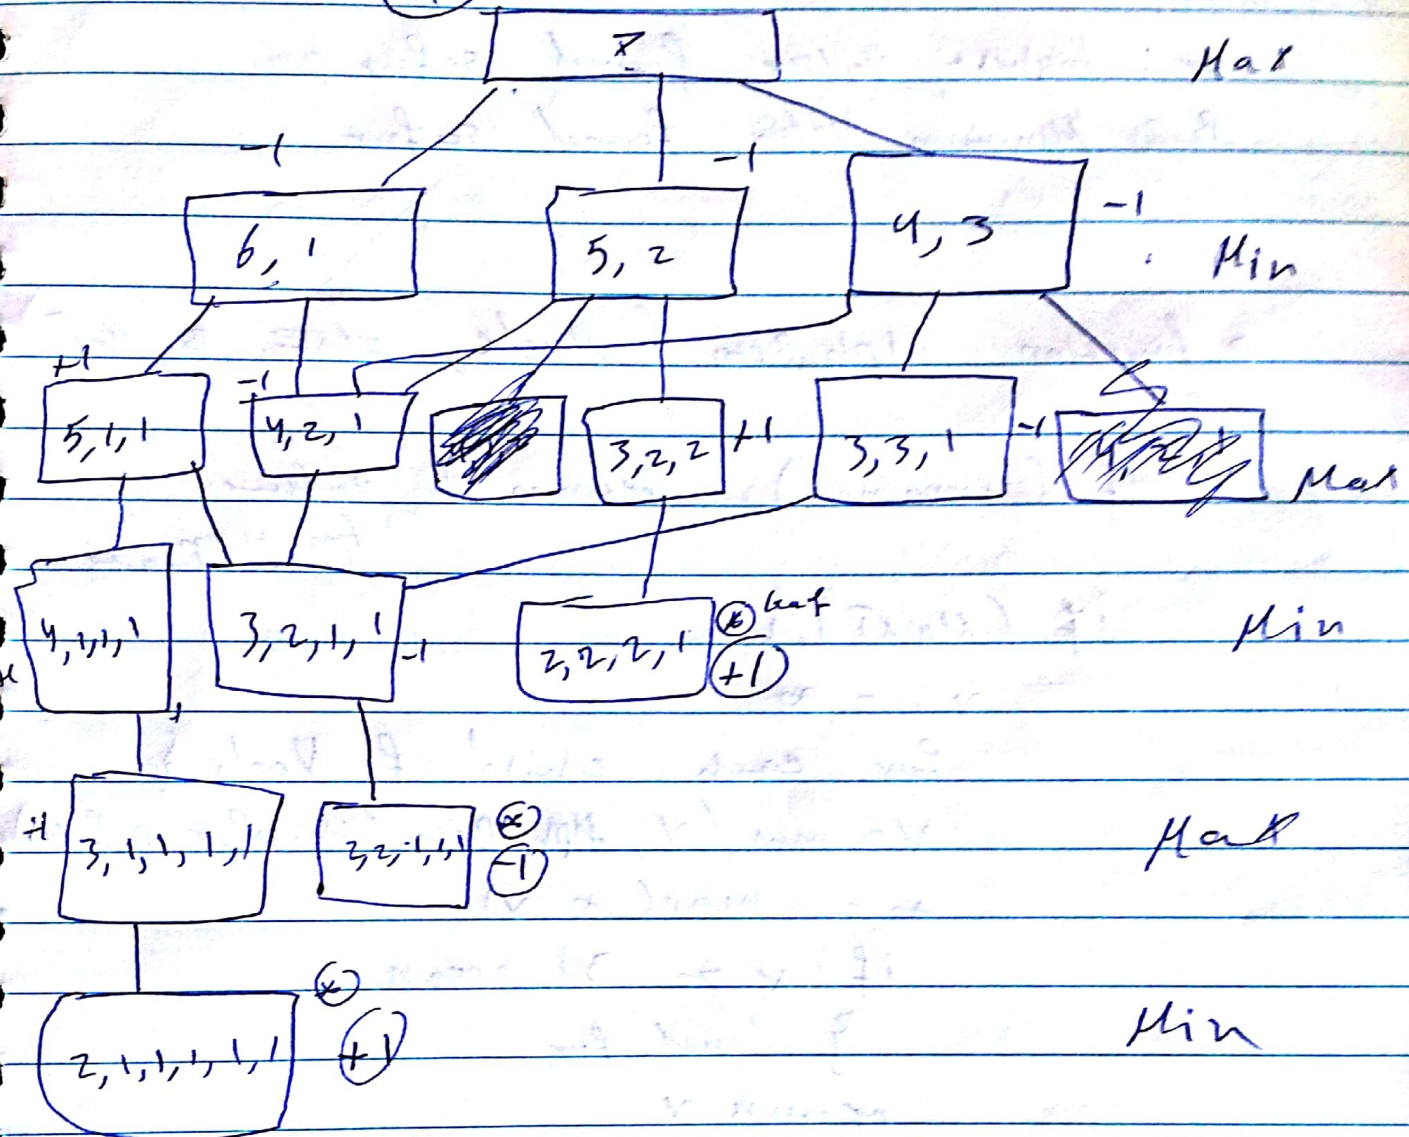 7 Max
-1 -1
6, 1 5, 2 4, 3 -1 Min
+1 -1
5,1,1 4,2,1 3,2,2 +1 3,3,1 -1 Max
4,1,1,1 3,2,1,1 -1 2,2,2,1 leaf +1 Min
+1 3,1,1,1,1 -1 Max
2,1,1,1,1,1 +1 Min